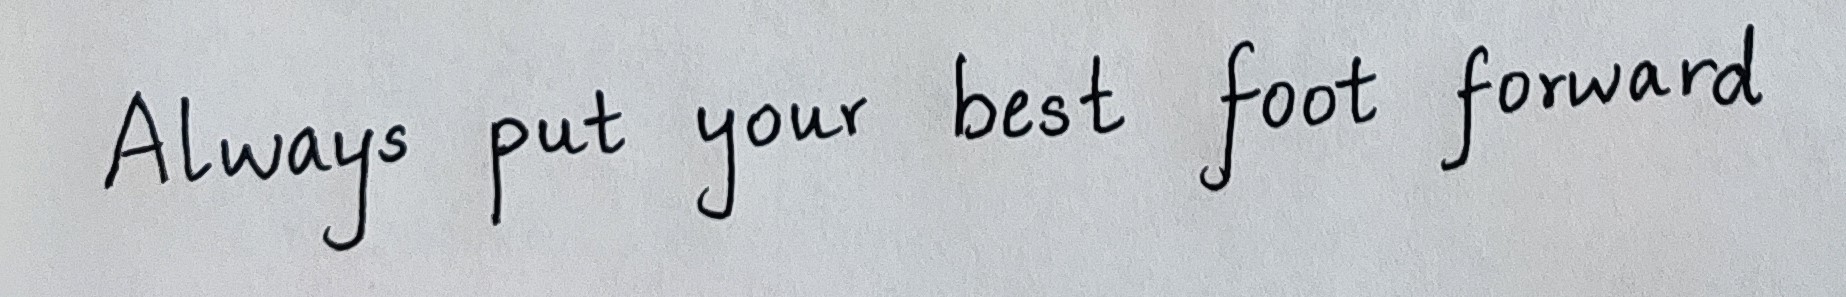 Always put your best foot forward